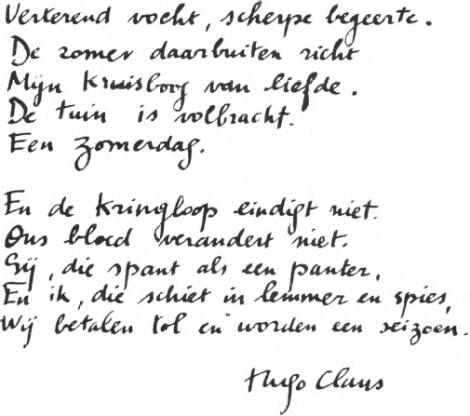 Verterend vocht, scherpe begeerte.
De zomer daarbuiten richt
Mijn kruisboog van liefde.
De tuin is volbracht.
Een zomerdag.

En de kringloop eindigt niet.
Ons bloed verandert niet.
Gij, die spant als een panter,
En ik, die schiet in lemmer en spies,
Wij betalen tol en worden een seizoen.

Hugo Claus